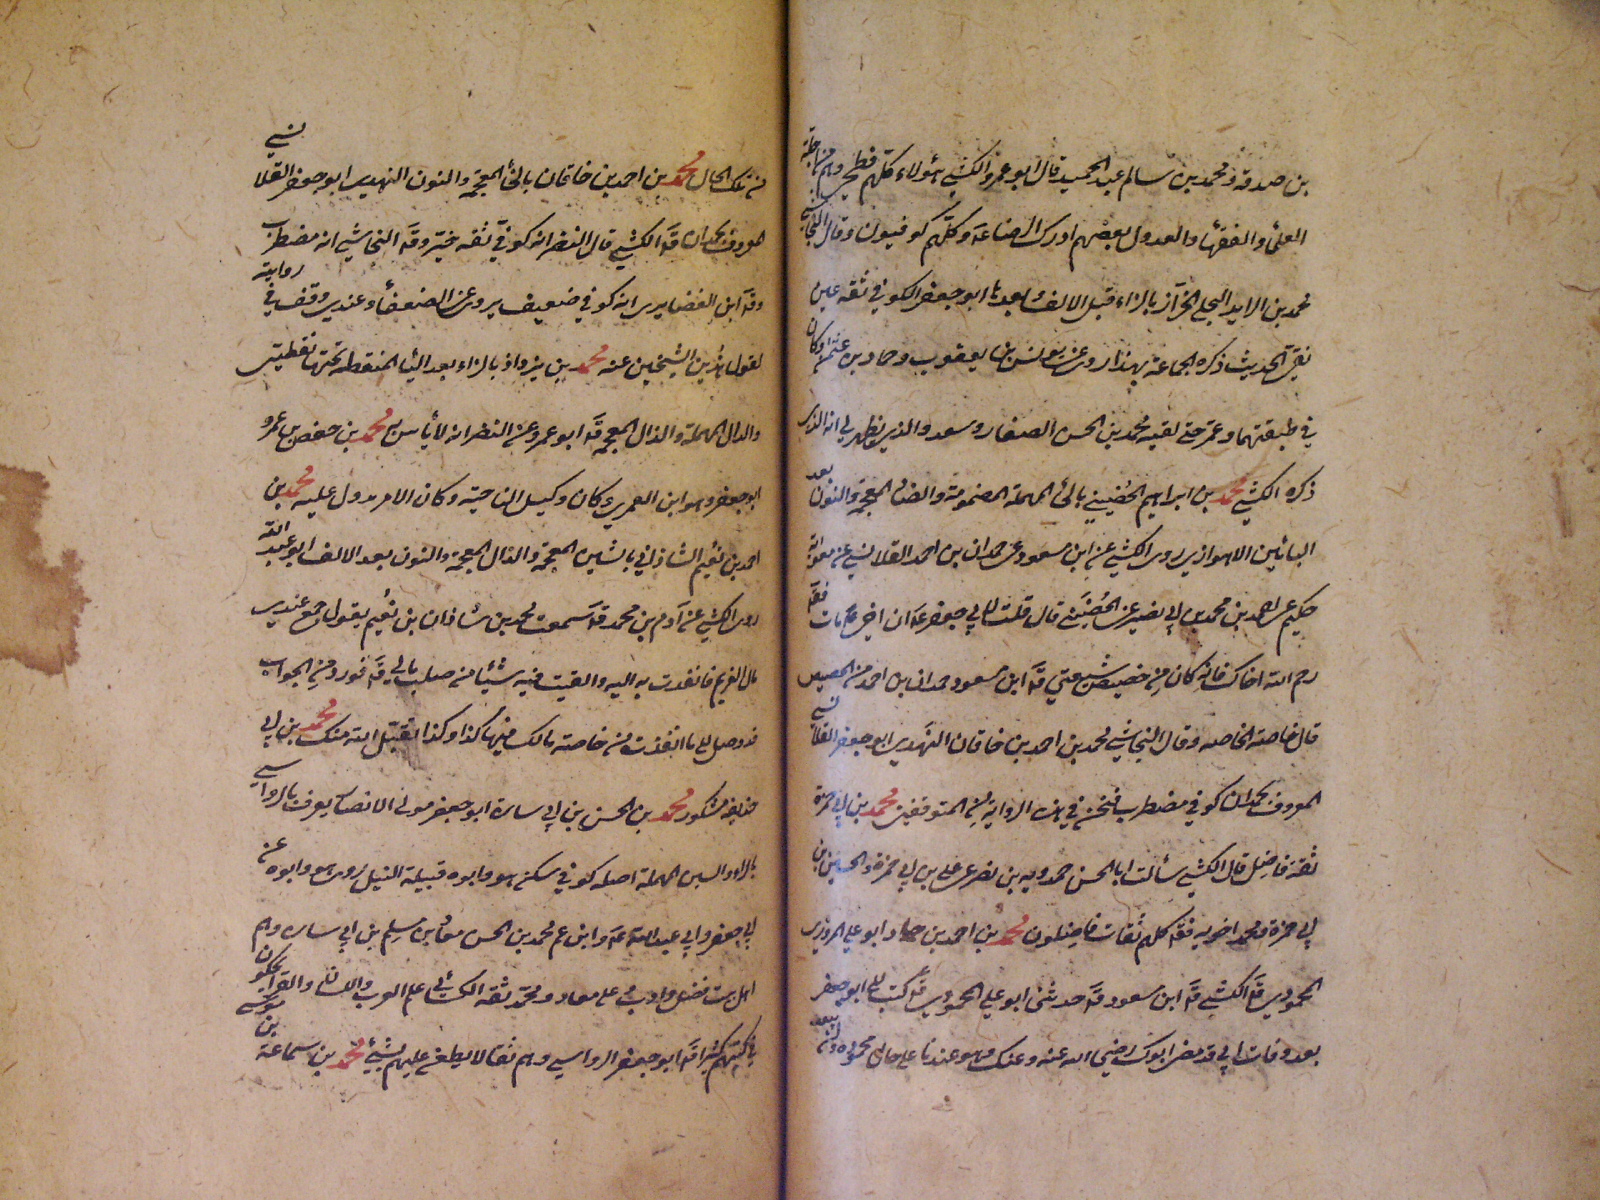 بن صدقة ومحمد بن سالم عبد الحميد قال ابو عمرو الكشي هؤلاء كلهم فطحية وهم من اجلة
العلماء والفقهاء والعدول بعضهم ادرك الرضا عه وكلهم كوفيون وقال النجاشي
محمد بن الوليد البجلي الخزاز بالزاء قبل الالف وبعدها ابو جعفر الكوفي ثقة عين
نقي الحديث ذكره الجماعة بهذا روى عن يونس بن يعقوب وحماد بن عثمان ومن كان
في طبقتهما وعمر حتى لقيه محمد بن الحسن الصفار وسعد والذي يظهر لي انه الذي
ذكره الكشي محمد بن ابراهيم الحضيني بالحاء المهملة المضمومة والضاد المعجمة والنون بعد
اليائين الاهوازي روى الكشي عن ابن مسعود عن حمدان بن احمد القلانسي عن معوية بن
حكيم عن احمد بن محمد بن ابي نصير عن الحضيني قال قلت لابي جعفر عه ان اخي مات فقه
رحم الله اخاك فانه كان من خصيص شيعتي قه ابن مسعود حمدان بن احمد من الخصيص
قال خاصة الخاصة وقال النجاشي محمد بن احمد بن خاقان النهدي ابو جعفر القلانسي
المعروف بحمدان كوفي مضطرب فنحن في هذه الرواية من المتوقفين محمد بن ابي حمزة
ثقة فاضل قال الكشي سألت ابا الحسن حمدويه بن نصر عن علي بن ابي حمزة والحسين بن
ابي حمزة ومحمد اخويه فقه كلهم ثقات فاضلون محمد بن احمد بن حماد ابو علي المروزي
المحمودي قه الكشي قه ابن مسعود قه حدثني ابو علي المحمودي قه كتب الي ابو جعفر
بعد وفات ابي قد مضى ابوك رضي الله عنه وعنك وهو عندنا على حال محمودة ولن يبعد
من تلك الحال محمد بن احمد بن خاقان بالخاء المعجمة والنون النهدي ابو جعفر القلانسي
المعروف بحمدان قه الكشي قال النضر انه كوفي ثقه خير وقه النجاشي انه مضطرب
وقه ابن الغضايري انه كوفي ضعيف يروي عن الضعفاء وعندي وقف في روايته
لقول هذين الشيخين عنه محمد بن يزداد بالزاء بعد الياء المنقطة تحتها نقطتين
والدال المهملة والذال المعجمة قه ابو عمرو عن النضر انه لا بأس به محمد بن حفص بن عمرو
ابو جعفر وهو ابن العمري وكان وكيل الناحية وكان الامر يدور عليه محمد بن
احمد بن نعيم الشاذاني بالشين المعجمة والذال المعجمة والنون بعد الالف ابو عبد الله
روى الكشي عن آدم بن محمد قه سمعت محمد بن شاذان بن نعيم يقول جمع عندي
مال الغريم فانفذت به اليه والقيت فيه شيئا من صلب مالي قه فورد من الجواب
قد وصل الي ما انفذت من خاصة مالك فيها كذا وكذا تقبل الله منك محمد بن ابي
حذيفة مشكور محمد بن الحسن بن ابي سارة ابو جعفر مولى الانصار يعرف بالرواسي
بالراء والسين المهملة اصله كوفي سكن هو وابوه قبيلة النيل روى هو وابوه عن
ابي جعفر وابي عبد الله عه وابن عم محمد بن الحسن معاذ بن مسلم بن ابي سارة وهم
اهل بيت فضل وادب وعلى معاد ومحمد تفقه الكسائي علم العرب والكسائي والفراء يحكون
في كتبهم كثيرا قه ابو جعفر الرواسي وهم ثقات لا يطعن عليهم بشيء محمد بن سماعة بن موسى